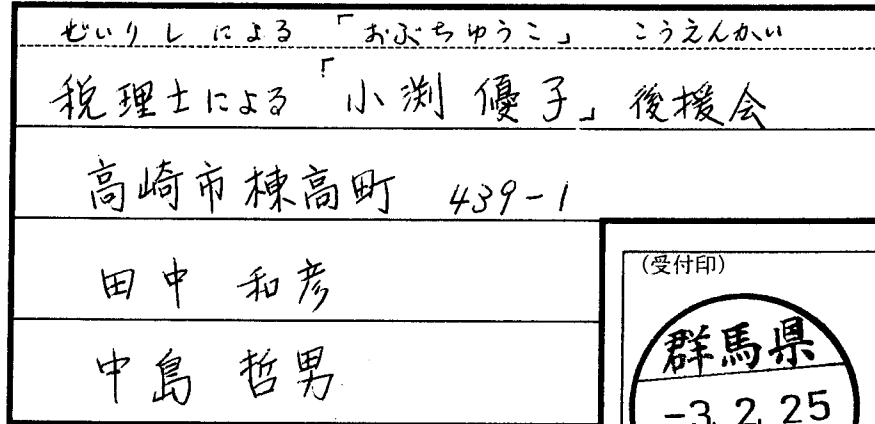 ぜいりしによる「おぶちゆうこ」こうえんかい
税理士による「小渕優子」後援会
高崎市棟高町 439-1
田中 和彦
中島 哲男
(受付印)
群馬県
-3.2.25